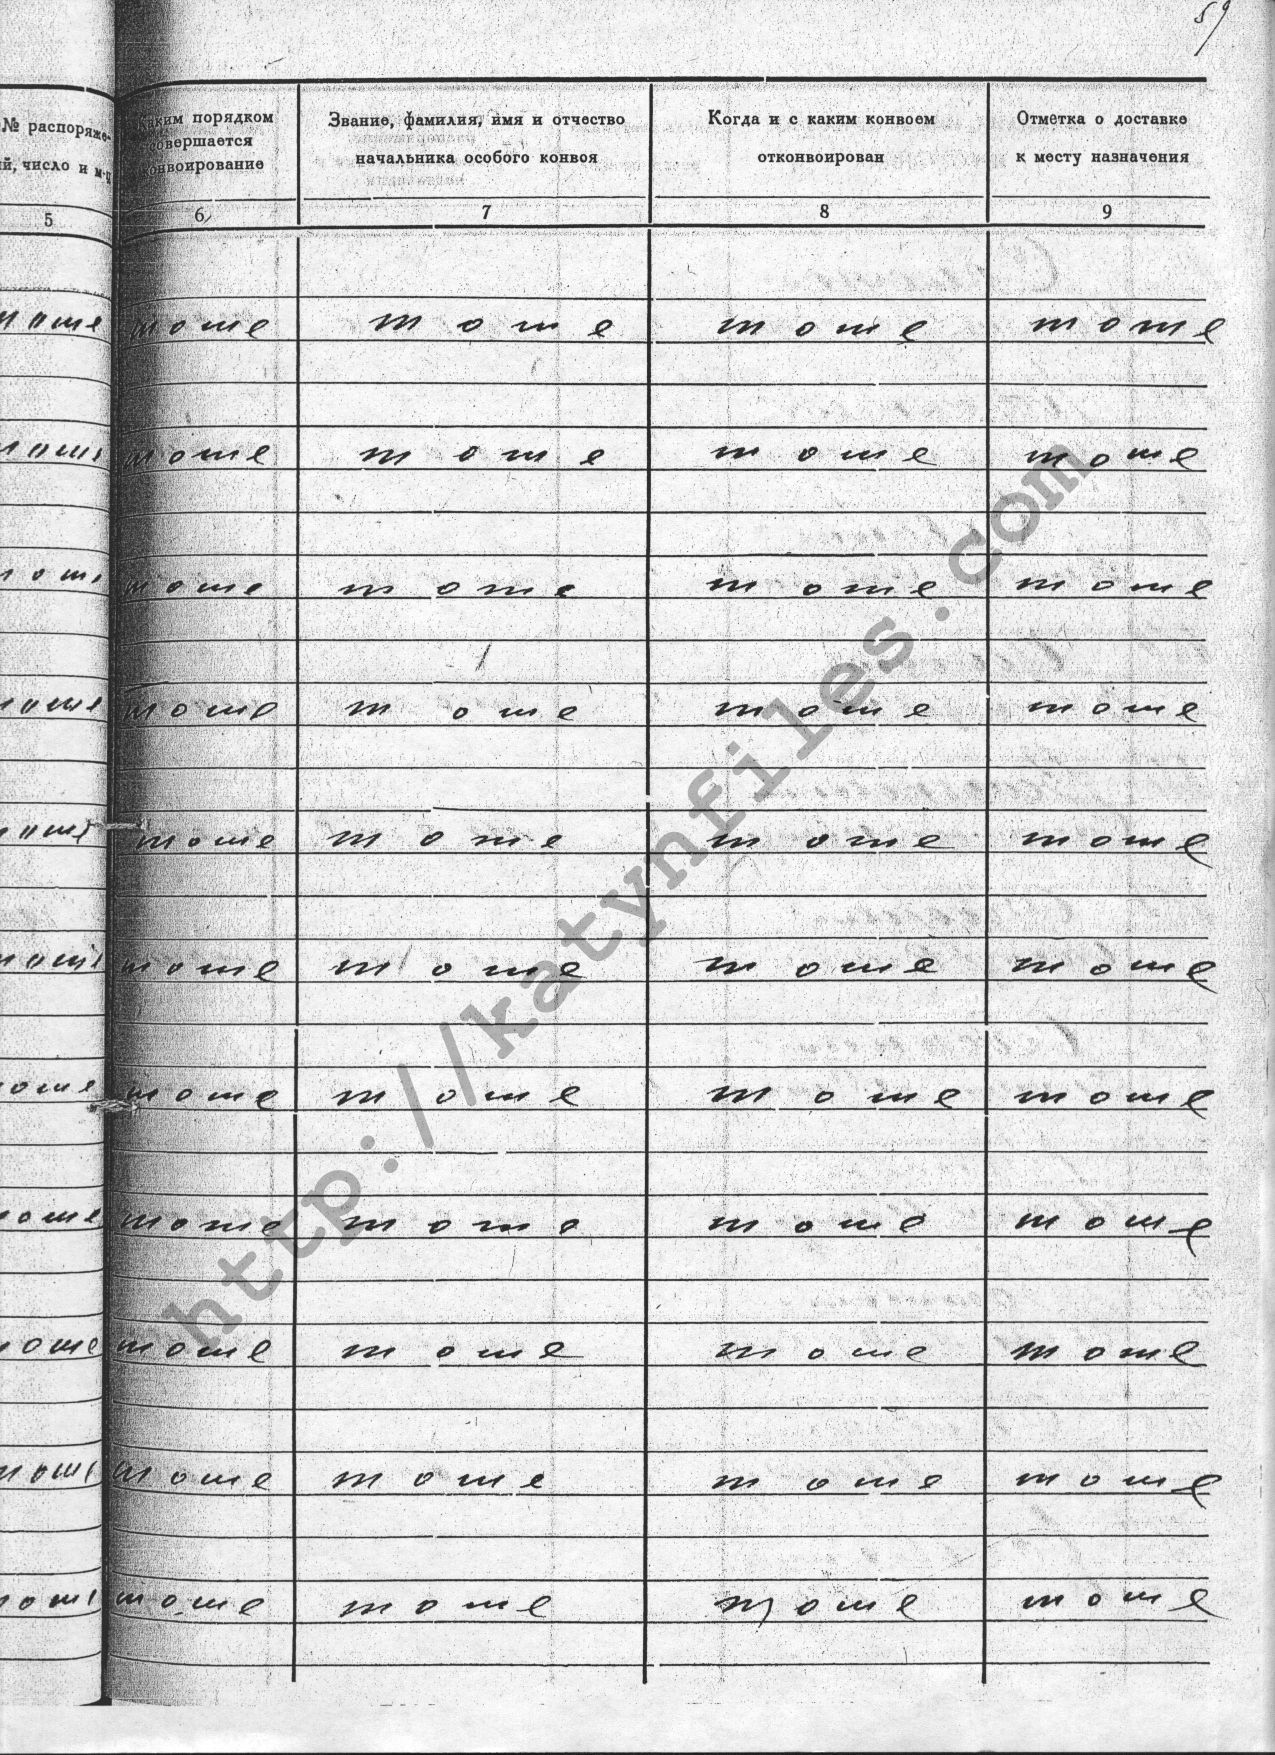 59
№ распоряже-
ий, число и м-ц
5
Каким порядком
совершается
конвоирование
6
Звание, фамилия, имя и отчество
начальника особого конвоя
7
Когда и с каким конвоем
отконвоирован
8
Отметка о доставке
к месту назначения
9
тоже тоже тоже тоже тоже
тоже тоже тоже тоже тоже
тоже тоже тоже тоже тоже
тоже тоже тоже тоже тоже
тоже тоже тоже тоже тоже
тоже тоже тоже тоже тоже
тоже тоже тоже тоже тоже
тоже тоже тоже тоже тоже
тоже тоже тоже тоже тоже
тоже тоже тоже тоже тоже
тоже тоже тоже тоже тоже
http://katynfiles.com